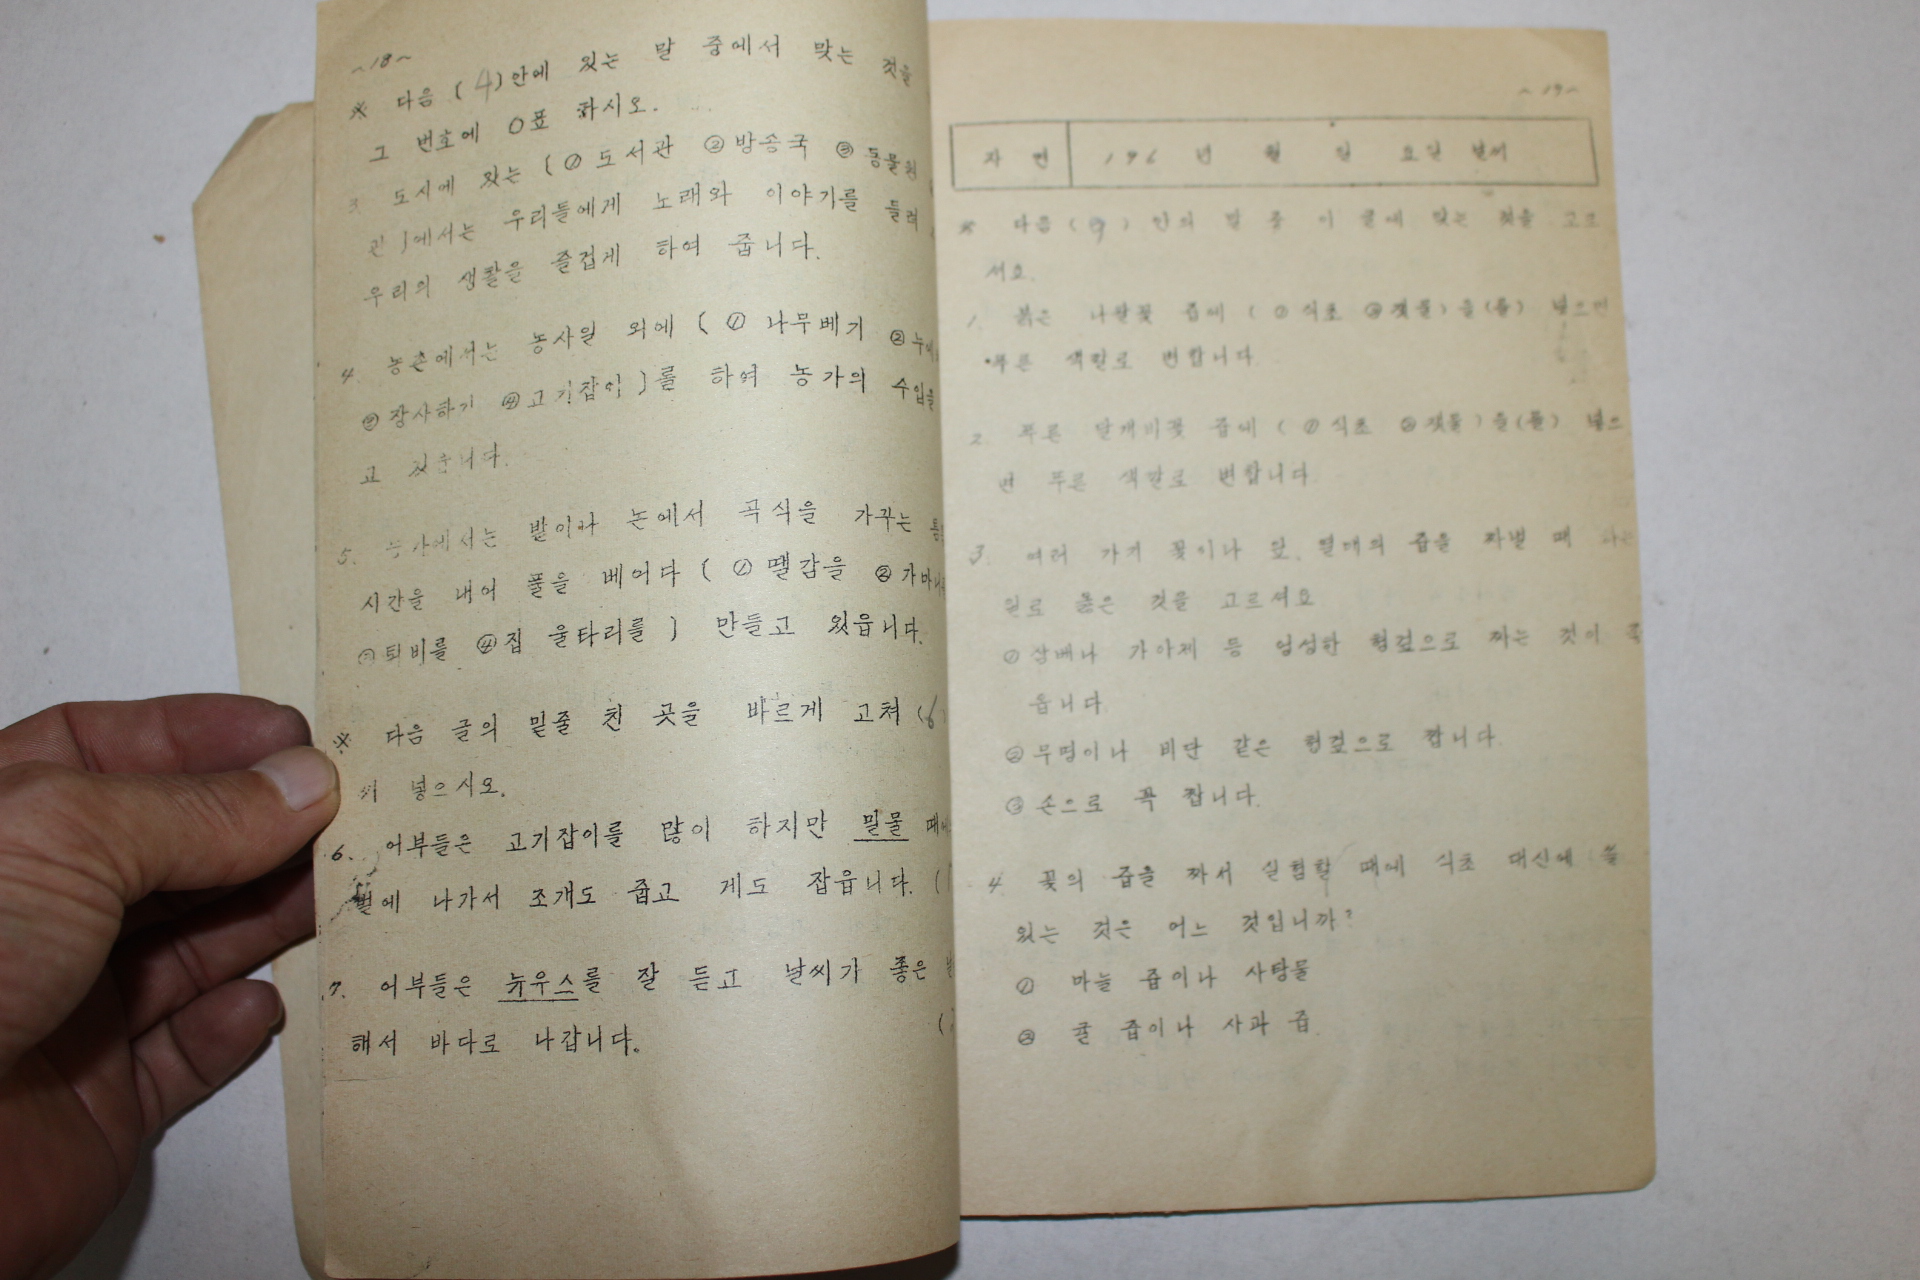 ~18~
※ 다음 (4)안에 있는 말 중에서 맞는 것을
그 번호에 O표 하시오.
3. 도시에 있는 (①도서관 ②방송국 ③동물원
관)에서는 우리들에게 노래와 이야기를 들려
우리의 생활을 즐겁게 하여 줍니다.
4. 농촌에서는 농사일 외에 (① 나무베기 ②누에
③장사하기 ④고기잡이)를 하여 농가의 수입을
고 있읍니다.
5. 농가에서는 밭이나 논에서 곡식을 가꾸는 틈틈
시간을 내어 풀을 베어다 (① 땔감을 ②가마니
③퇴비를 ④집 울타리를) 만들고 있읍니다.
※ 다음 글의 밑줄 친 곳을 바르게 고쳐 (6)
써 넣으시오.
6. 어부들은 고기잡이를 많이 하지만 밀물 때에
벌에 나가서 조개도 줍고 게도 잡읍니다. (
7. 어부들은 뉴우스를 잘 듣고 날씨가 좋은
해서 바다로 나갑니다. (
~19~
자 연 196 년 월 일 요일 날씨
※ 다음 (9) 안의 말 중 이 글에 맞는 것을 고르
세요.
1. 붉은 나팔꽃 즙에 (①식초 ②잿물)을(를) 넣으면
푸른 색깔로 변합니다
2. 푸른 달개비꽃 즙에 (①식초 ②잿물)을(를) 넣으
면 푸른 색깔로 변합니다
3. 여러 가지 꽃이나 잎, 열매의 즙을 짜낼 때 하는
일로 옳은 것을 고르세요
①삼베나 가아제 등 엉성한 헝겊으로 짜는 것이 좋
읍니다
②무명이나 비단 같은 헝겊으로 짭니다.
③손으로 꼭 짭니다.
4 꽃의 즙을 짜서 실험할 때에 식초 대신에 쓸
있는 것은 어느 것입니까?
① 마늘 즙이나 사탕물
② 귤 즙이나 사과 즙.